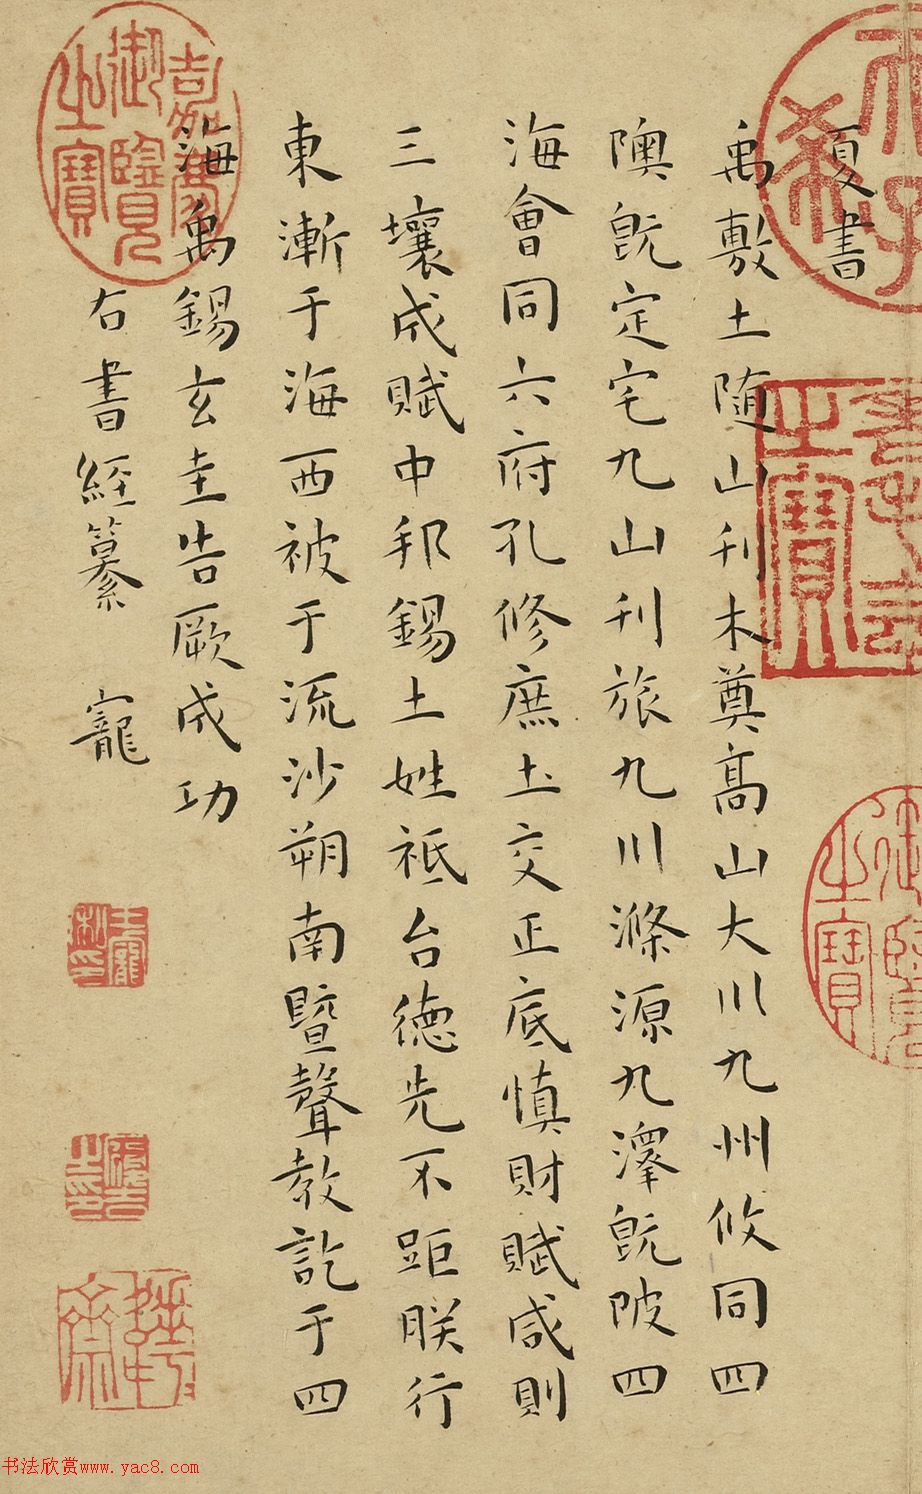 夏書
禹敷土随山刊木奠高山大川九州攸同四
隩既定宅九山刊旅九川滌源九澤既陂四
海會同六府孔修庶土交正底慎財賦咸則
三壤成賦中邦錫土姓祗台德先不距朕行
東漸于海西被于流沙朔南暨聲教訖于四
海禹錫玄圭告厥成功
右書經纂　寵
嘉慶御覽之寶
御覽之寶
之寶
王寵私印
書法欣赏www.yac8.com